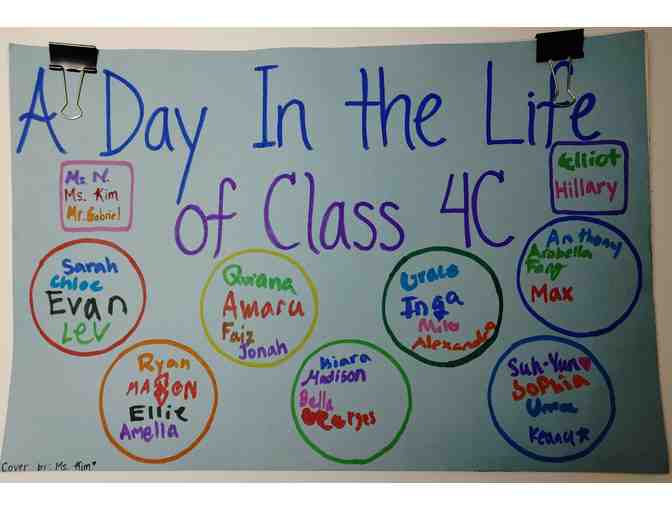 A Day In the Life
of Class 4C
Ms. N.
Ms. Kim
Mr. Gabriel
Elliot
Hillary
Sarah
Chloe
Evan
Lev
Amaru
Faiz
Jonah
Grace
Inga
Milo
Alexandra
Anthony
Arabella
Fang
Max
Ryan
MASON
Ellie
Amelia
Kiara
Madison
Bella
Georges
Suh-Yun
Sophia
Uma
Keanu
Cover by: Ms. Kim